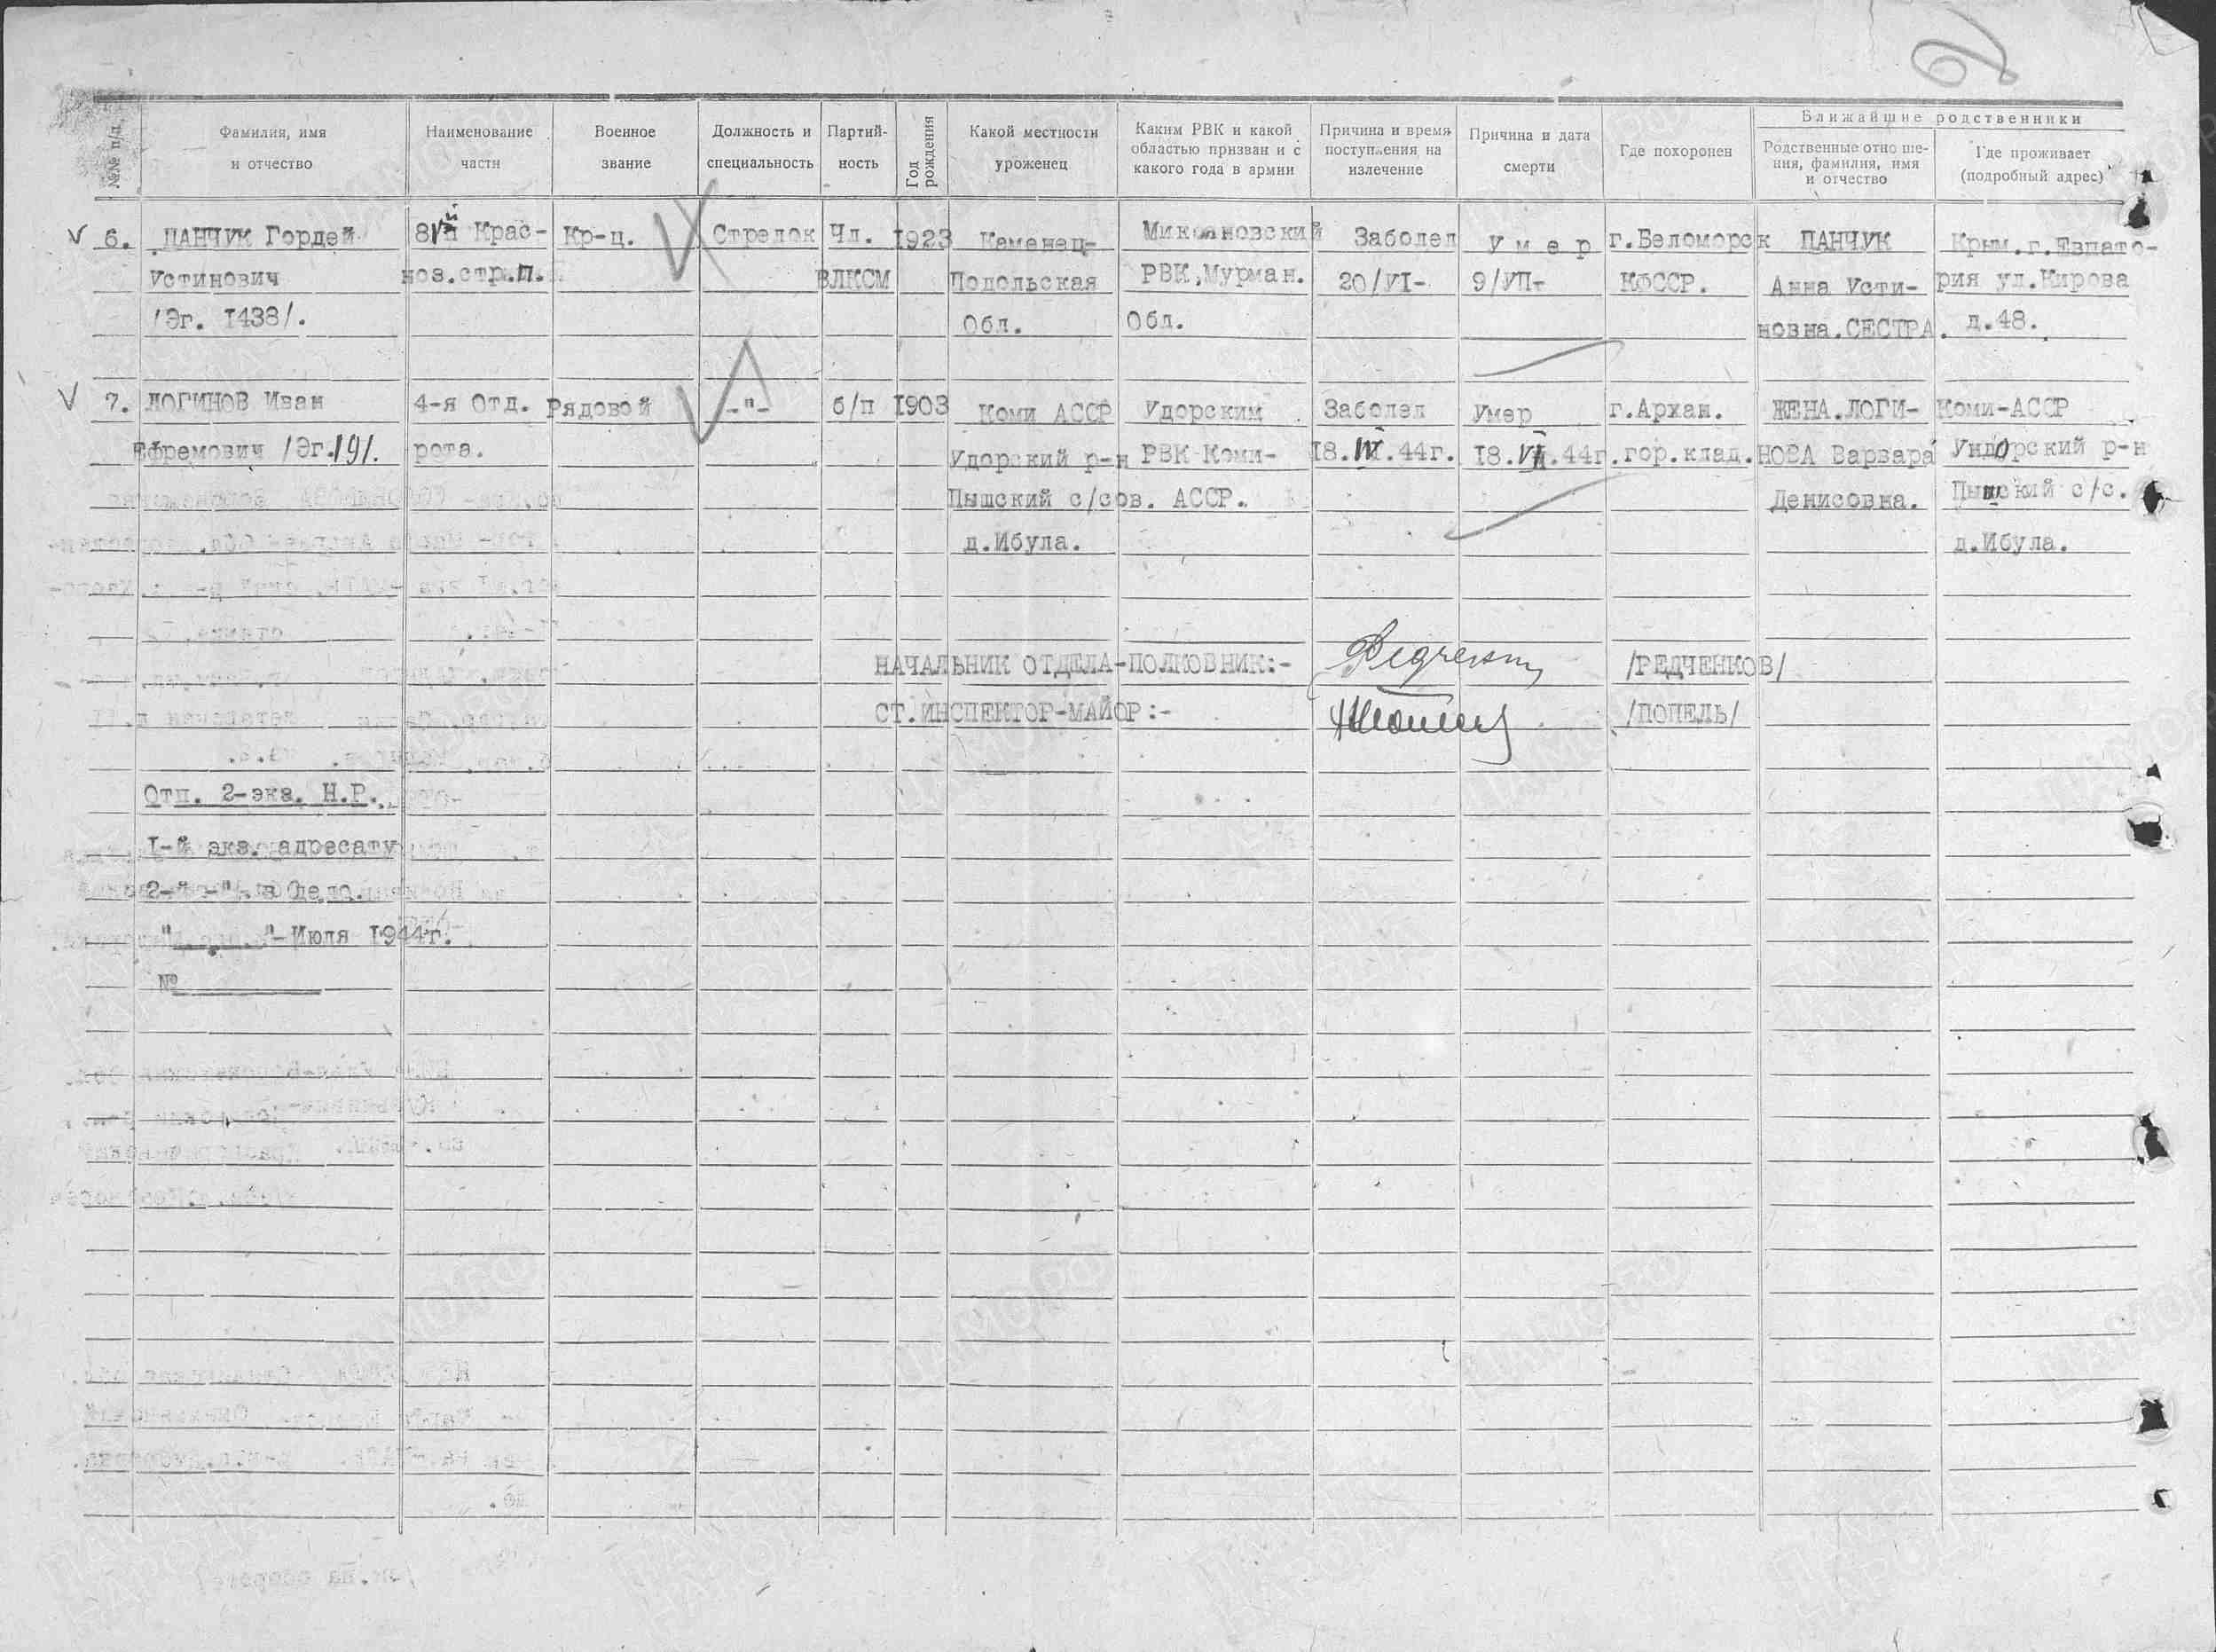 №№ п/п.
Фамилия, имя
и отчество
Наименование
части
Военное
звание
Должность и
специальность
Партий-
ность
Год
рождения
Какой местности
уроженец
Каким РВК и какой
областью призван и с
какого года в армии
Причина и время
поступления на
излечение
Причина и дата
смерти
Где похоронен
Ближайшие родственники
Родственные отноше-
ния, фамилия, имя
и отчество
Где проживает
(подробный адрес)
6. ПАНЧУК Гордей Крас- Кр-ц. Стрелок Чл. 1923 Каменец- Заболел Умер г.Беломорск ПАНЧУК Крым.г.Евпато-
Устинович ноз.стр.п. ВЛКСМ Подольская РВК,Мурман. 20/VI- 9/УП- КФССР. Анна Усти- рия ул.Кирова
/Эг. I438/. Обл. Обл. новна.СЕСТРА. д.48.
7. ЛОГИНОВ Иван 4-я Отд. Рядовой -"- б/п 1903 Коми АССР Удорским Заболел Умер г.Архан. ЖЕНА.ЛОГИ- Коми-АССР
Ефремович /Эг.191. рота. Удорский р-н РВК Коми- .44г. 18.VII.44г. гор.клад. НОВА Варвара Ундорский р-н
Пышский с/сов. АССР. Денисовна. Пышский с/с.
д.Ибула. д.Ибула.
НАЧАЛЬНИК ОТДЕЛА-ПОЛКОВНИК:- /РЕДЧЕНКОВ/
СТ.ИНСПЕКТОР-МАЙОР:- /ПОПЕЛЬ/
Отп. 2-экз. Н.Р.
I-й экз. адресату
2-й -"- в Дело.
" "-Июля 1944г.
№